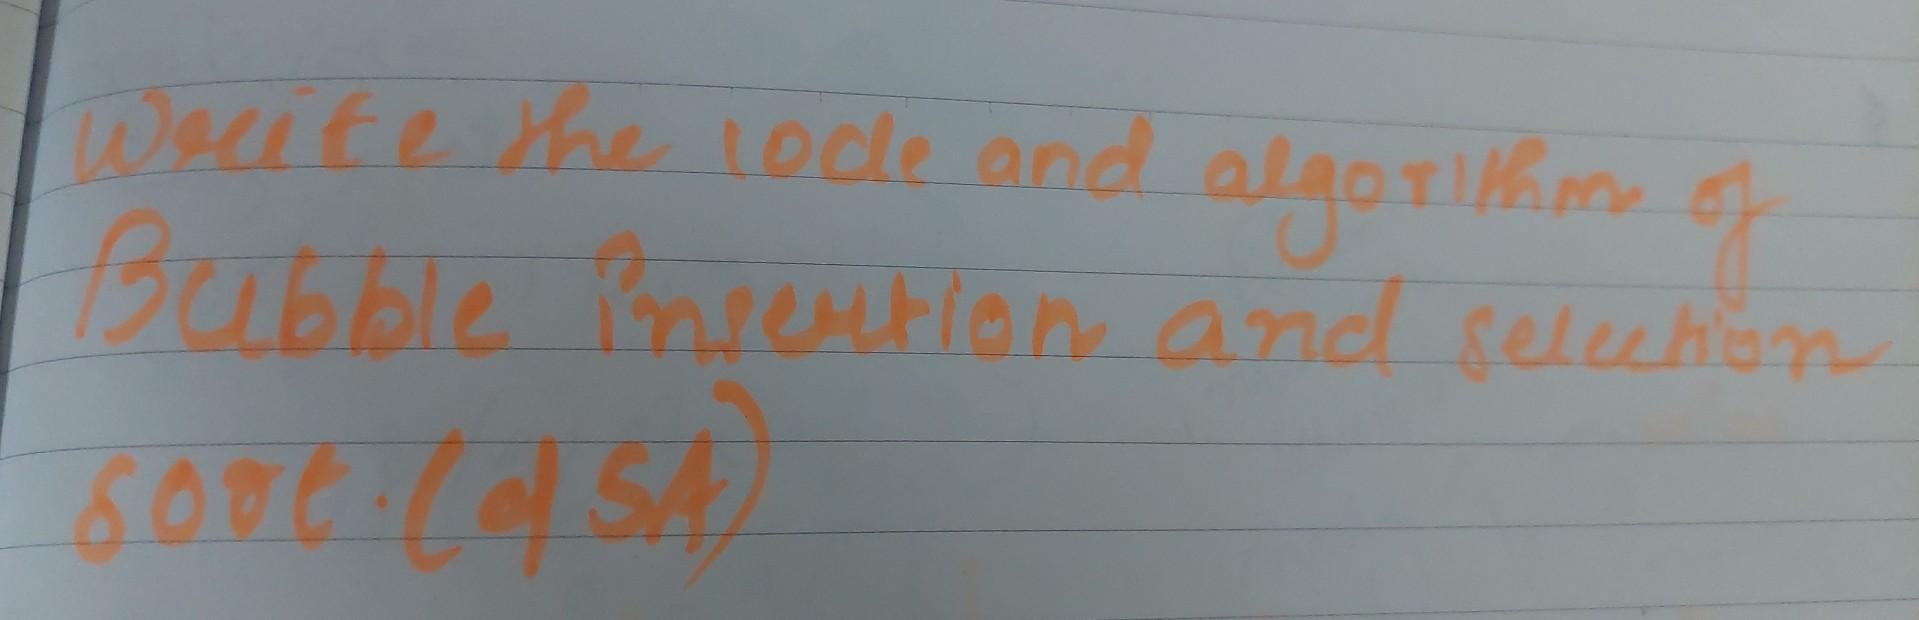 Write the code and algorithm of
Bubble insertion and selection
sort. (dSA)